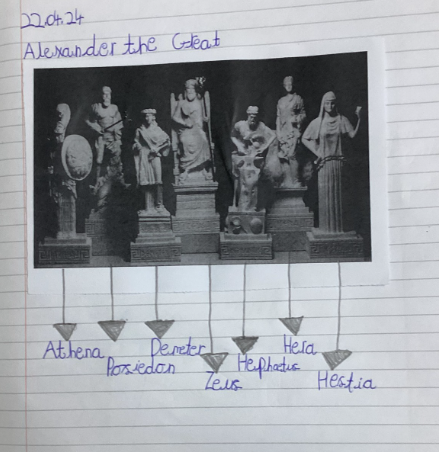 22.04.24
Alexander the Great
Athena
Posiedon
Demeter
Zeus
Hephaetus
Hera
Hestia